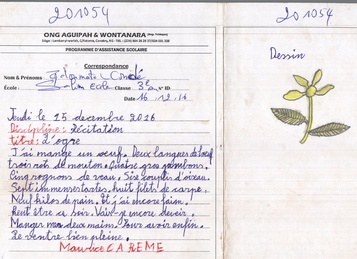 201054
201054
ONG AGUIPAH & WONTANARA
PROGRAMME D'ASSISTANCE SCOLAIRE
Correspondance
Nom & Prénoms :
École : Classe : 3è N° ID:
Date 16.12.16
Jeudi le 15 decembre 2016
Discipline : récitation
titre : l'ogre
J'ai mangé un oeuf. Deux langues de boeuf
trois rôt de mouton. Quatre gros jambon.
Cinq rognons de veau. Six couples d'oiseau.
Sept immenses tartes. huit filets de carpe.
Neuf kilos de pain. Et j'ai encore faim.
Peut être ce soir. Vais-je encore devoir.
Manger mes deux main. Pour avoir enfin.
Le ventre bien pleine.
Maurice CAREME
Dessin